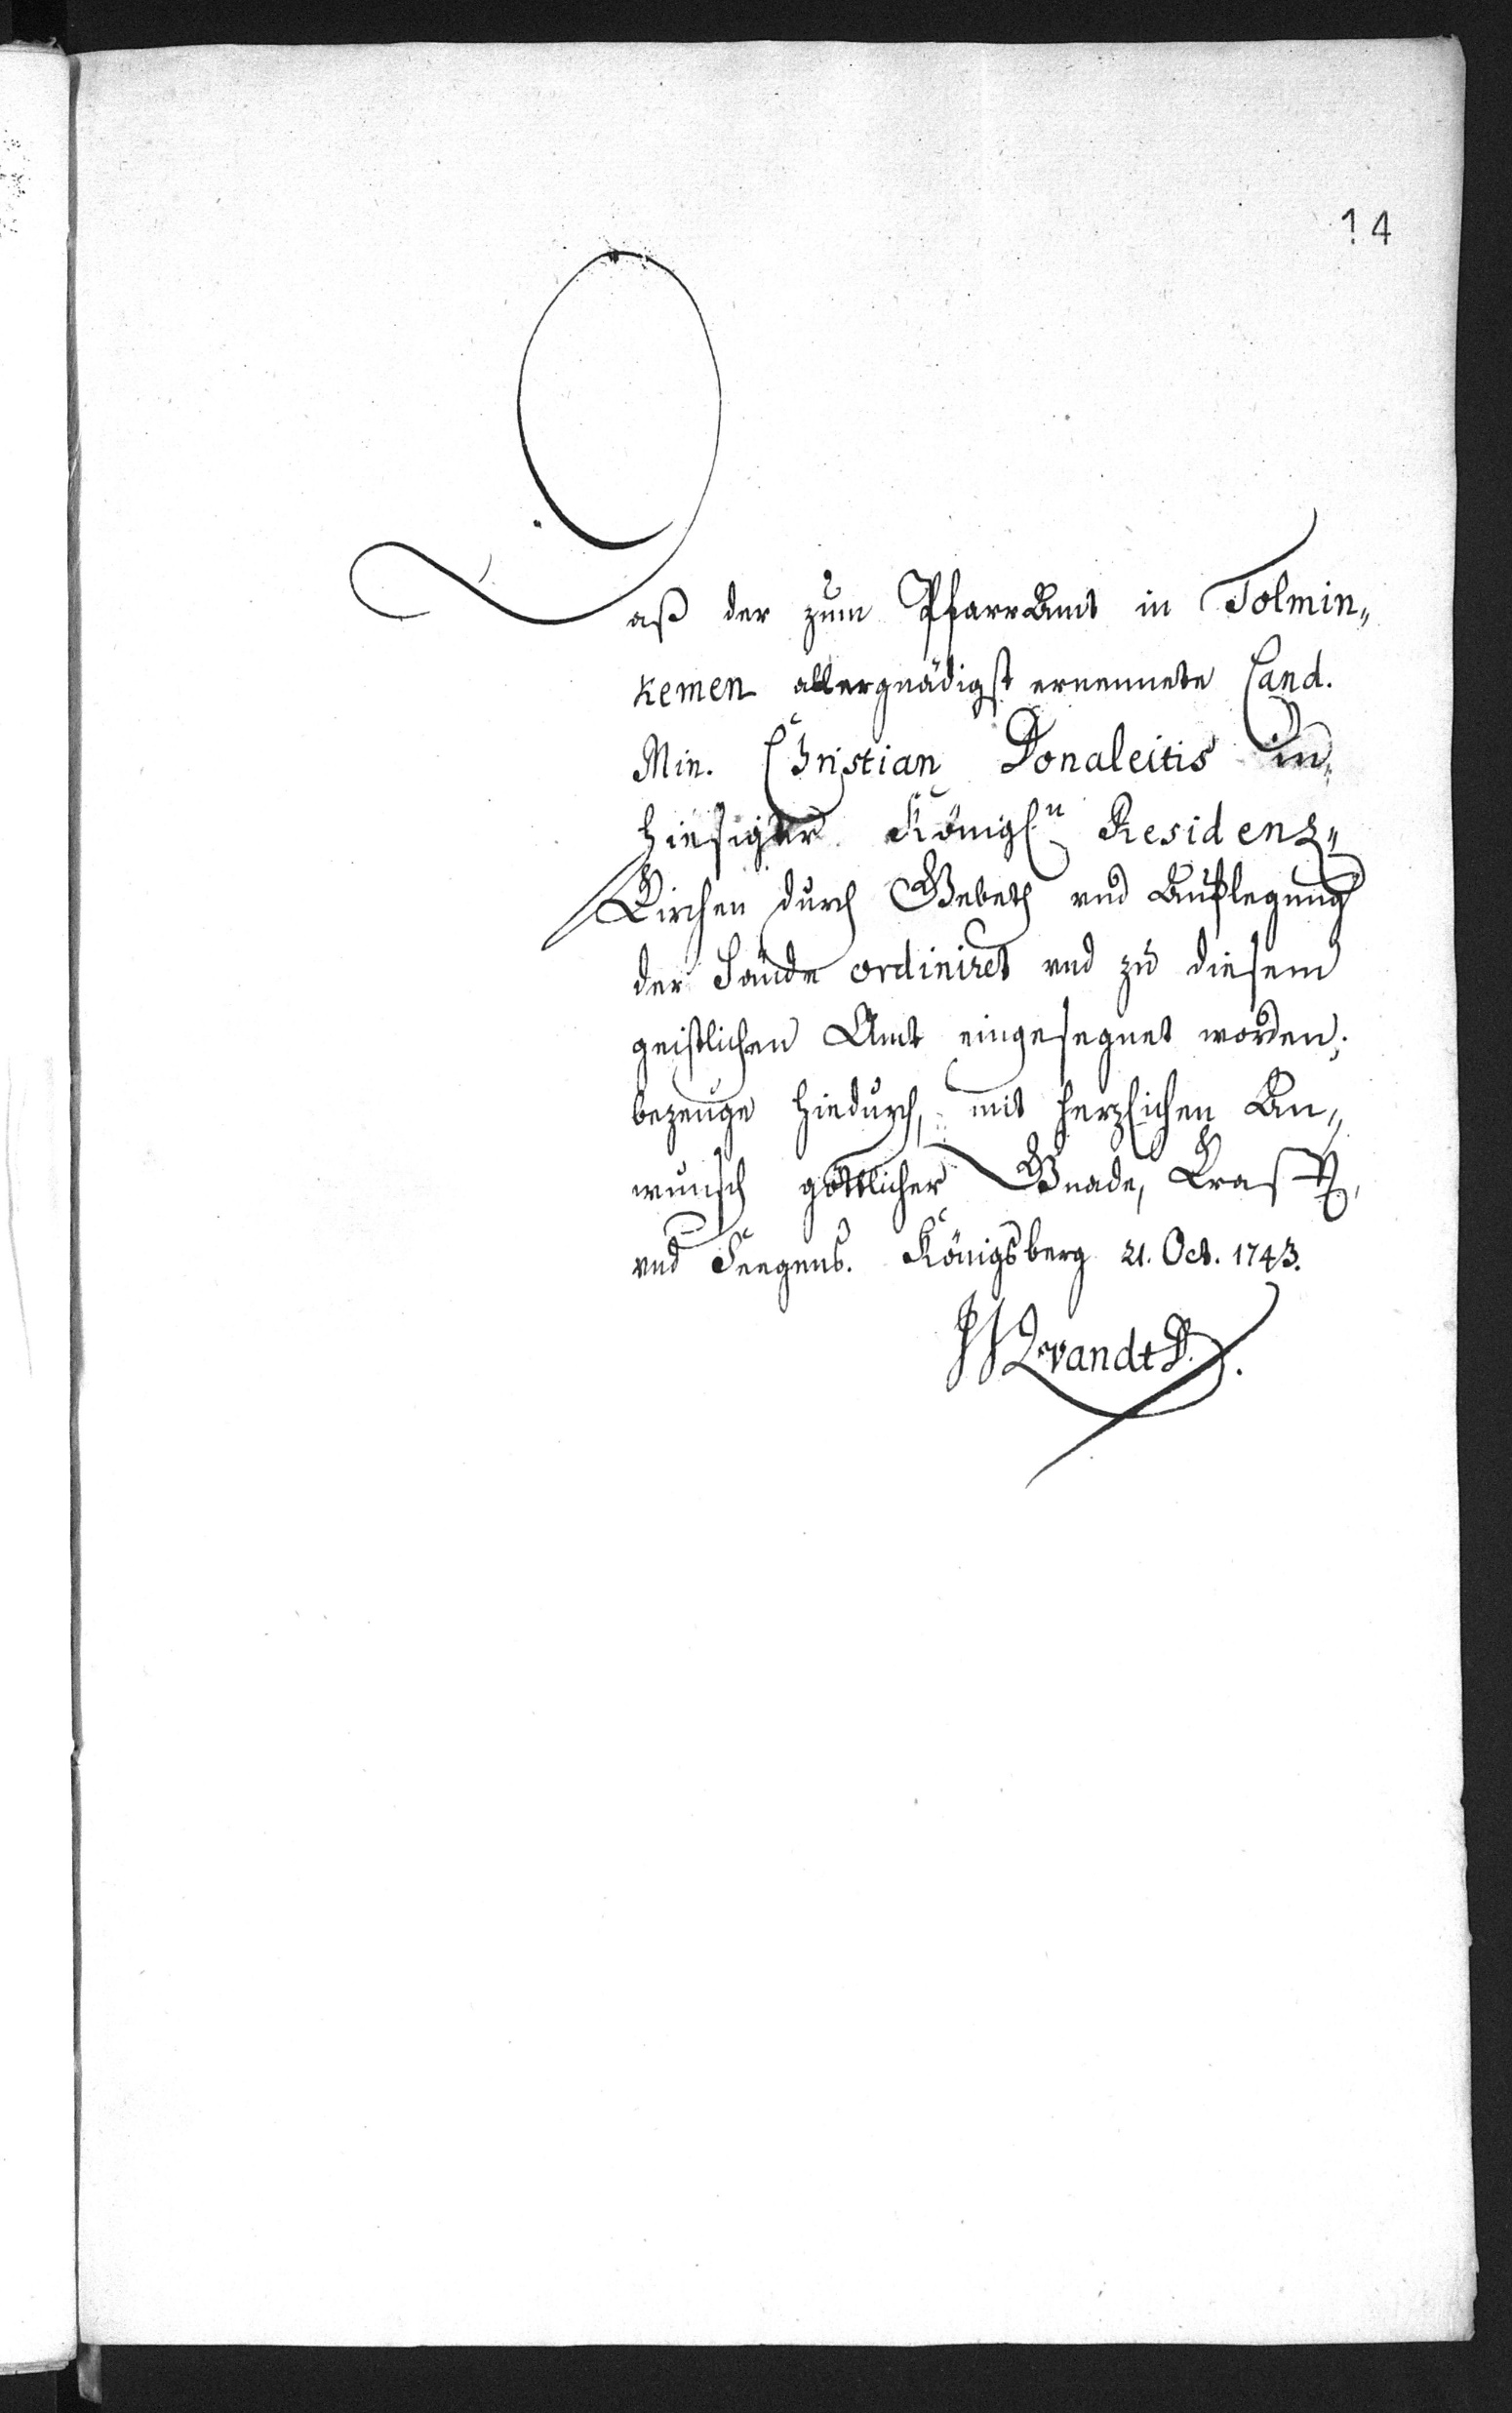 14
Daß der zum PfarrAmt in Tolmin„
kemen allergnädigst ernennete Cand.
Min. Christian Donaleitis in
hiesiger Königl.n Residenz„
Kirchen durch Gebeth und Auflegung
der Hände ordiniret und zu diesem
geistlichen Amt eingesegnet worden;
bezeuge hiedurch, mit herzlichen An„
wunsch göttlicher Gnade, Krafft,
und Seegens. Königsberg 21. Oct. 1743.
Qvandt D.